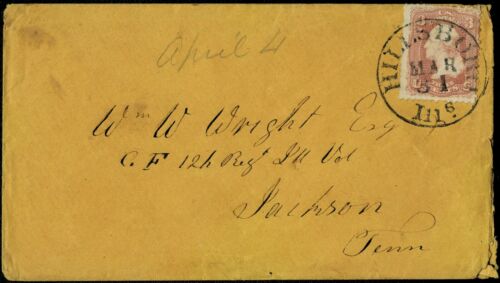 April 4
HILLSBORO
MAR
31
Ills.
Wm W Wright Esq
C. F 12th Regt Ill Vol
Jackson
Tenn